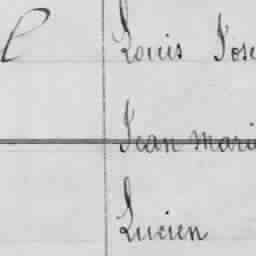 Louis Jose
Jean Mari
Lucien